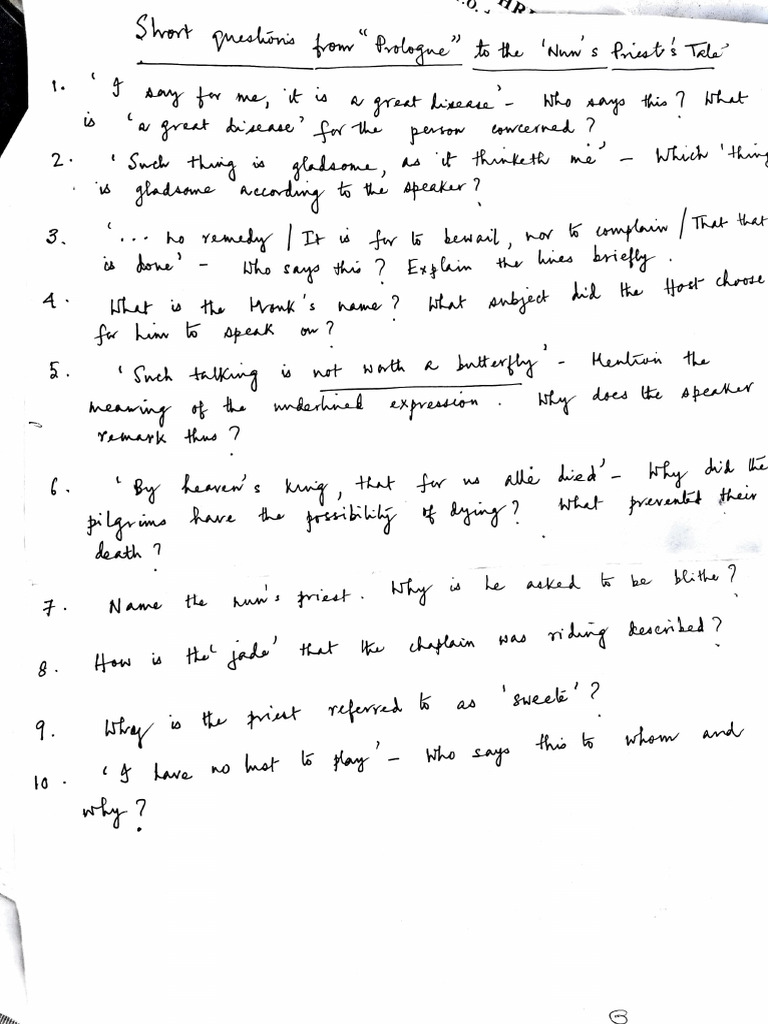 Short questions from "Prologue" to the 'Nun's Priest's Tale'
1. 'I say for me, it is a great disease' - Who says this? What
is 'a great disease' for the person concerned?
2. 'Such thing is gladsome, as it thinketh me' - Which 'thing
is gladsome according to the speaker?
3. '... no remedy / It is for to bewail, nor to complain / That that
is done' - Who says this? Explain the lines briefly.
4. What is the Monk's name? What subject did the Host choose
for him to speak on?
5. 'Such talking is not worth a butterfly' - Mention the
meaning of the underlined expression. Why does the speaker
remark thus?
6. 'By heaven's king, that for us allè died' - Why did the
pilgrims have the possibility of dying? What prevented their
death?
7. Name the nun's priest. Why is he asked to be blithe?
8. How is the 'jade' that the chaplain was riding described?
9. Why is the priest referred to as 'sweetè'?
10. 'I have no lust to play' - Who says this to whom and
why?